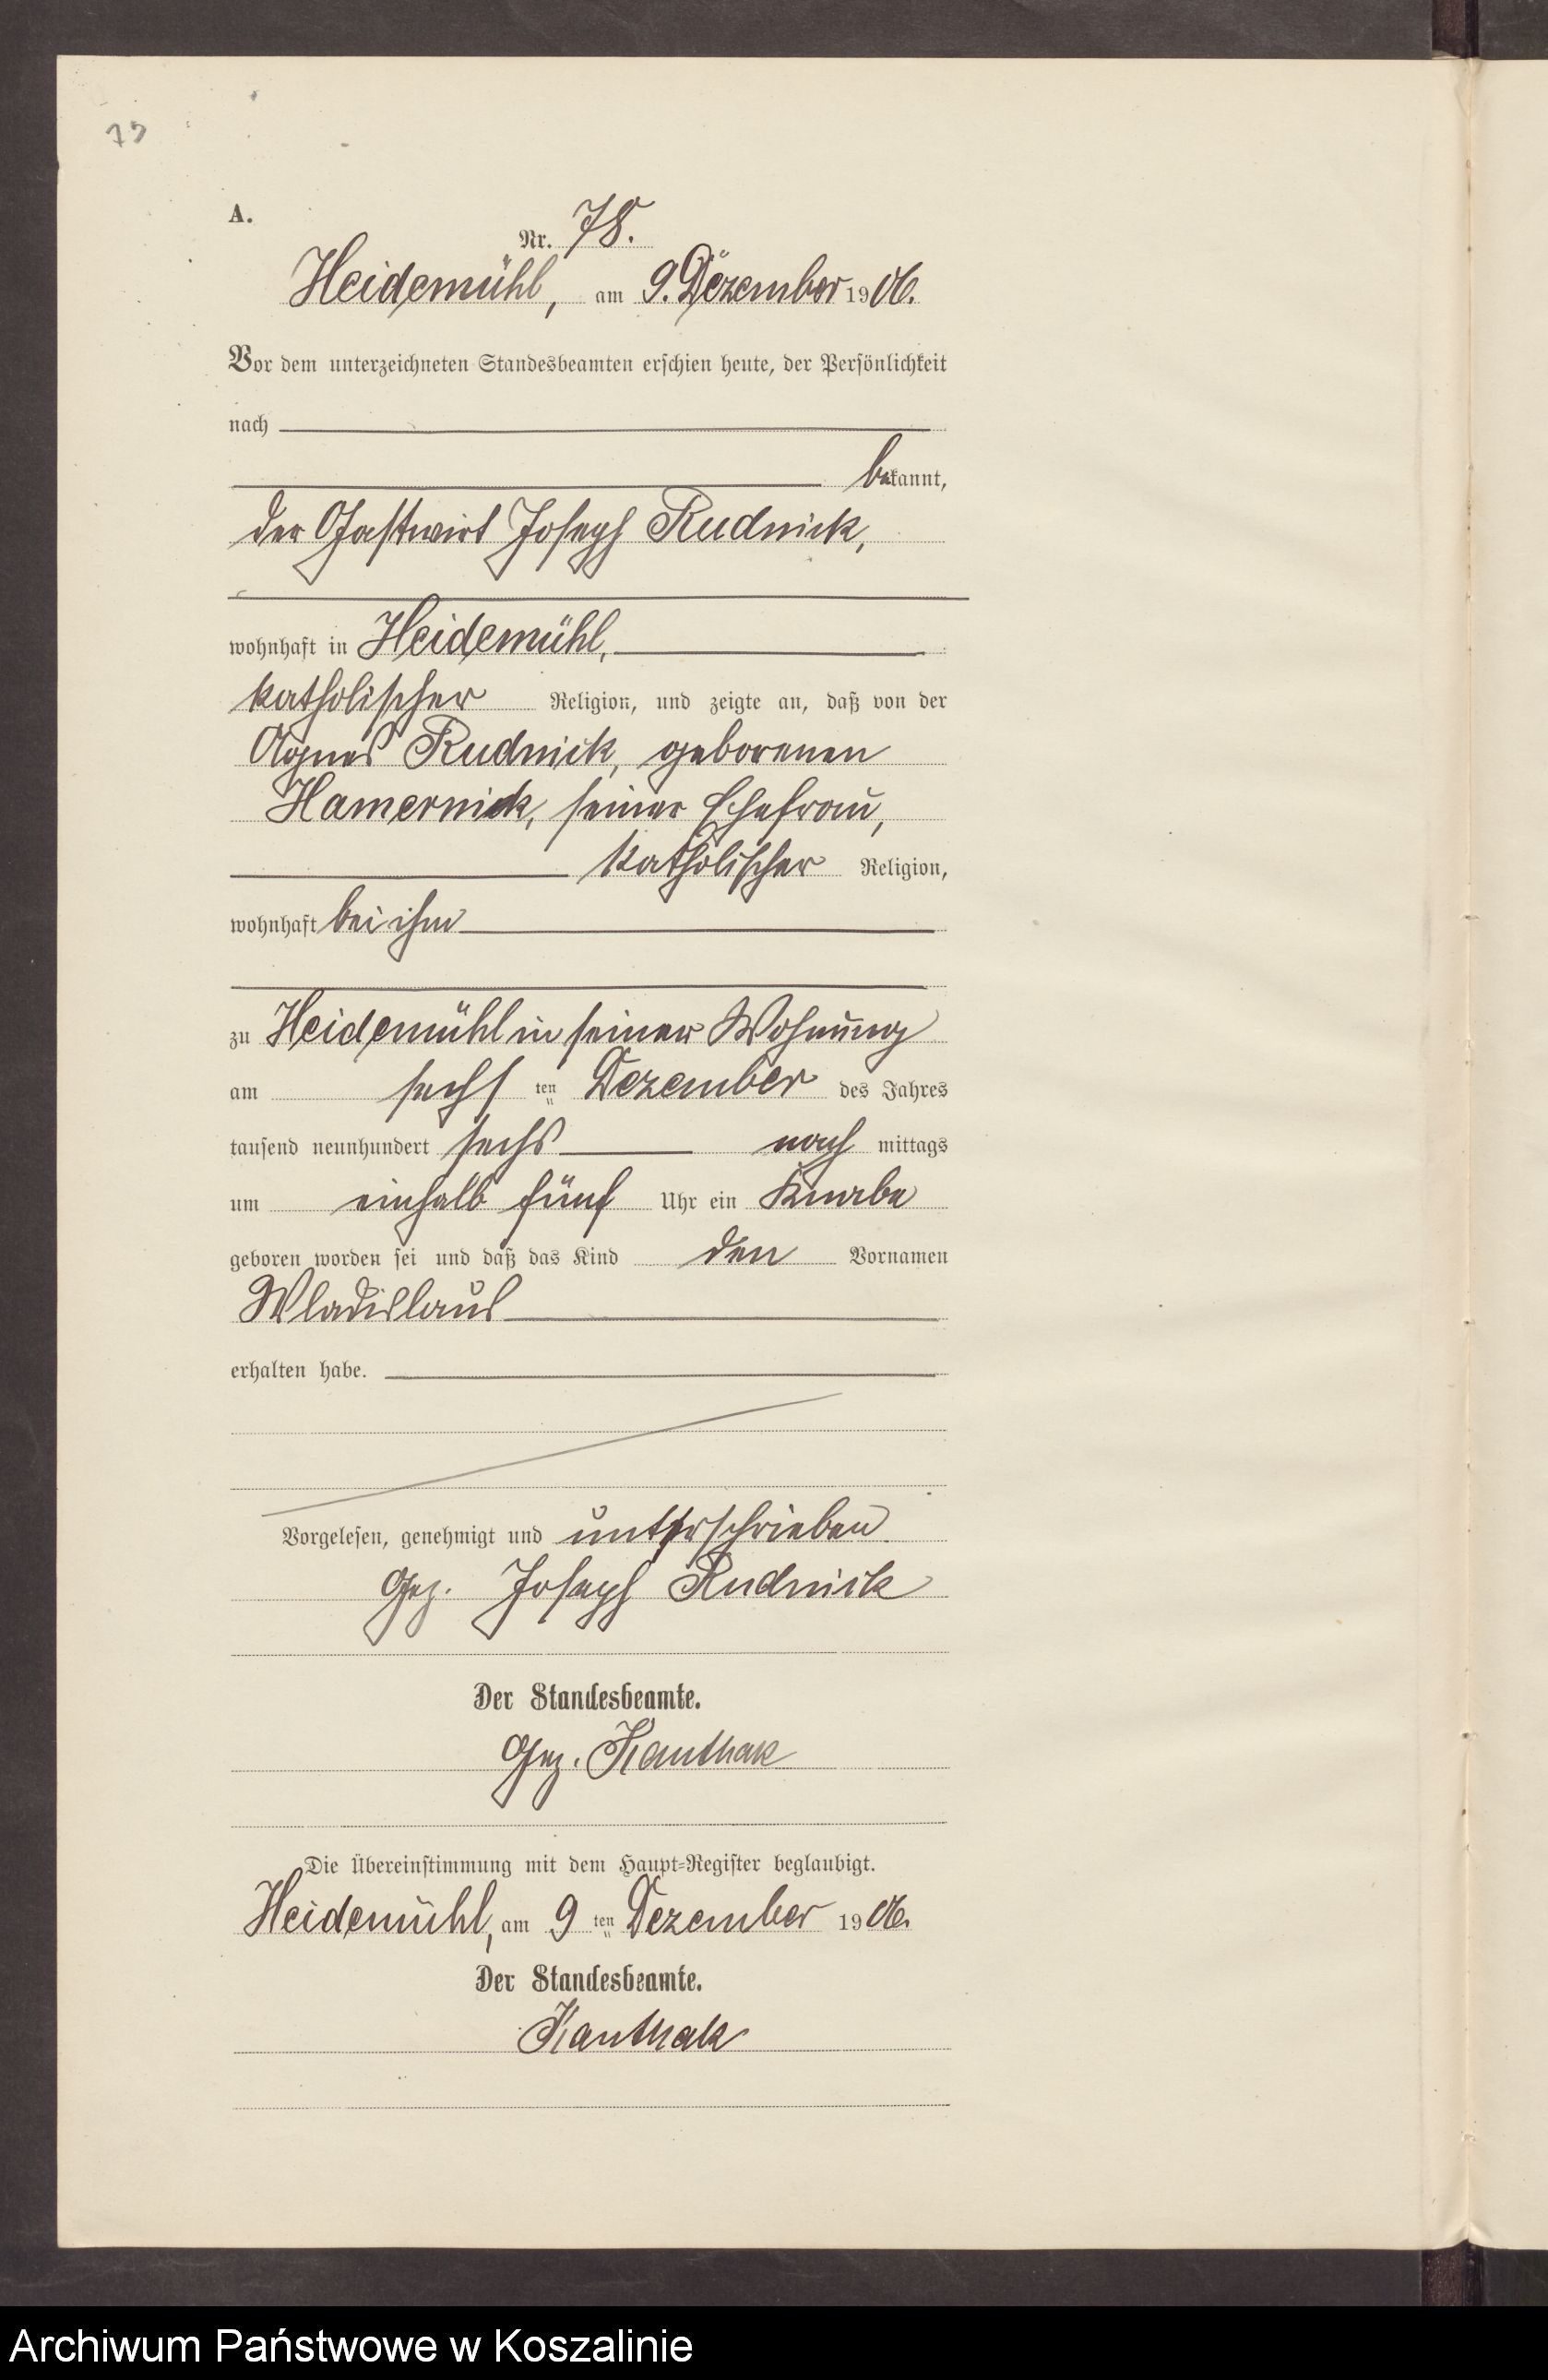 79
A.
Nr. 78.
Heidemühl, am 9. Dezember 1906.
Vor dem unterzeichneten Standesbeamten erschien heute, der Persönlichkeit
nach
bekannt,
der Gastwirt Joseph Rudnick,
wohnhaft in Heidemühl,
katholischer Religion, und zeigte an, daß von der
Agnes Rudnick, geborenen
Hamernick, seiner Ehefrau,
katholischer Religion,
wohnhaft bei ihm
zu Heidemühl in seiner Wohnung
am sechsten Dezember des Jahres
tausend neunhundert sechs nachmittags
um einhalb fünf Uhr ein Knabe
geboren worden sei und daß das Kind den Vornamen
Wladislaus
erhalten habe.
Vorgelesen, genehmigt und unterschrieben
Gez. Joseph Rudnick
Der Standesbeamte.
Gez. Kanthak
Die Übereinstimmung mit dem Haupt-Register beglaubigt.
Heidemühl, am 9ten Dezember 1906.
Der Standesbeamte.
Kanthak
Archiwum Państwowe w Koszalinie